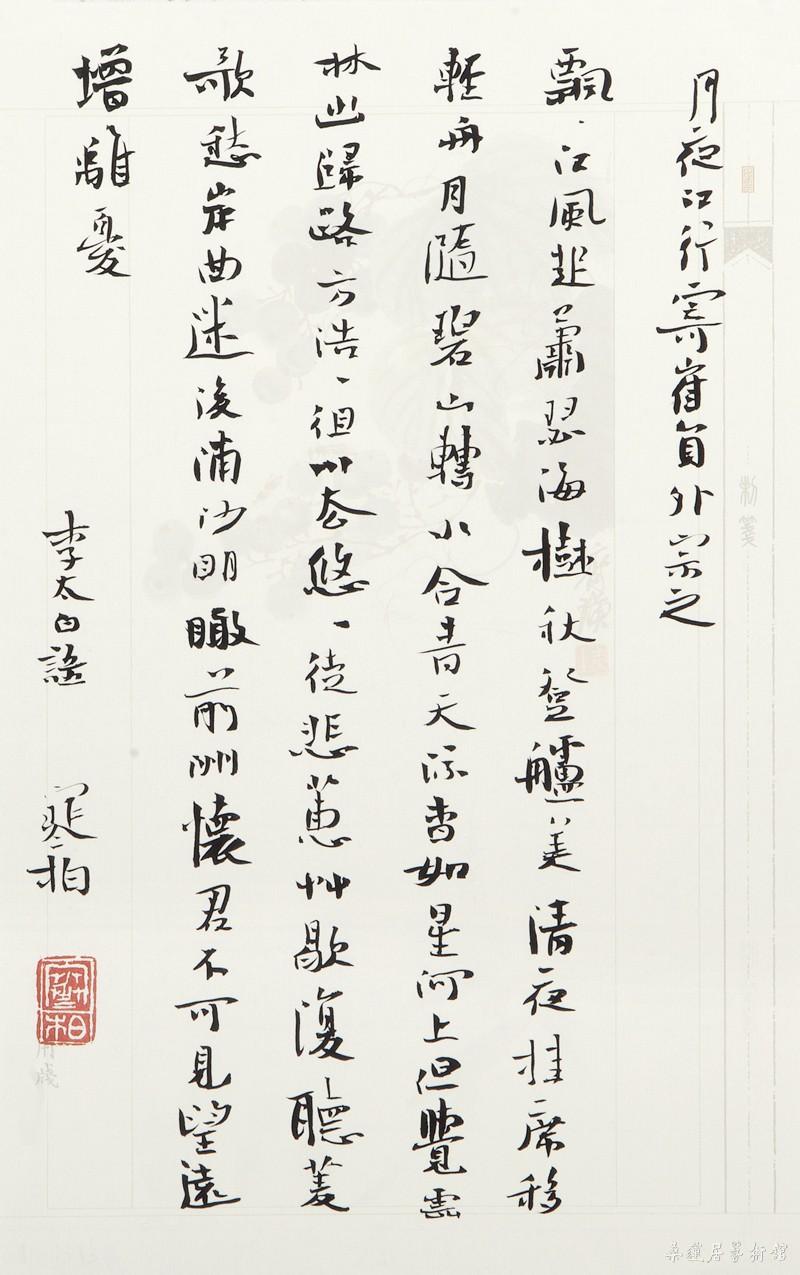 月夜江行寄崔員外宗之
飄、江風起蕭瑟海樹秋登艫美清夜挂席移
輕舟月隨碧山轉水合青天流杳如星河上但覺雲
林幽歸路方浩、徂川去悠、徒悲蕙艸歇復聽菱
歌愁岸曲迷後浦沙明瞰前洲懷君不可見望遠
增離憂
李太白謠
寒柏
寒柏
製箋
桑蓮居藝術館